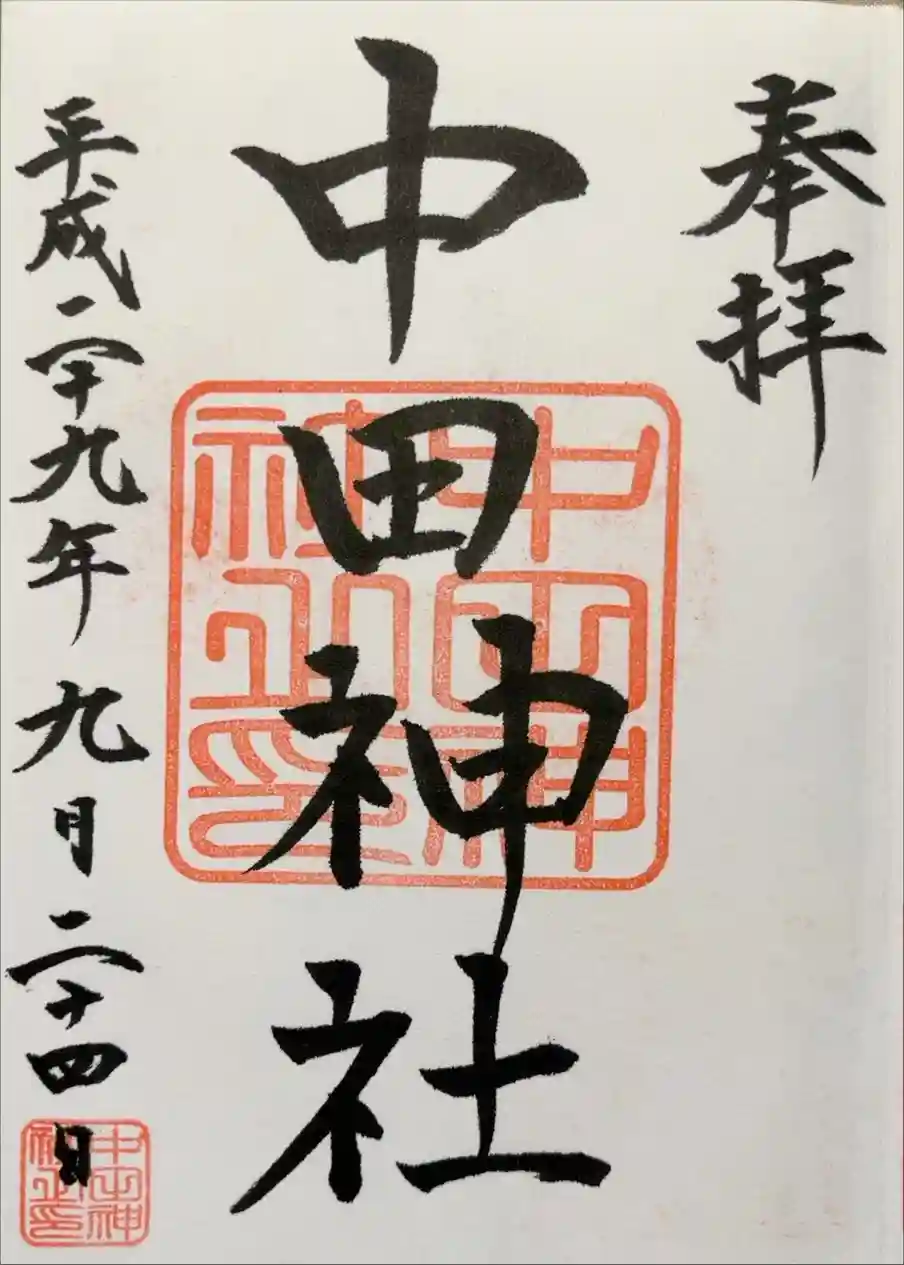 奉拝
中田神社
平成二十九年九月二十四日
中田神
社正印
中田神
社正印